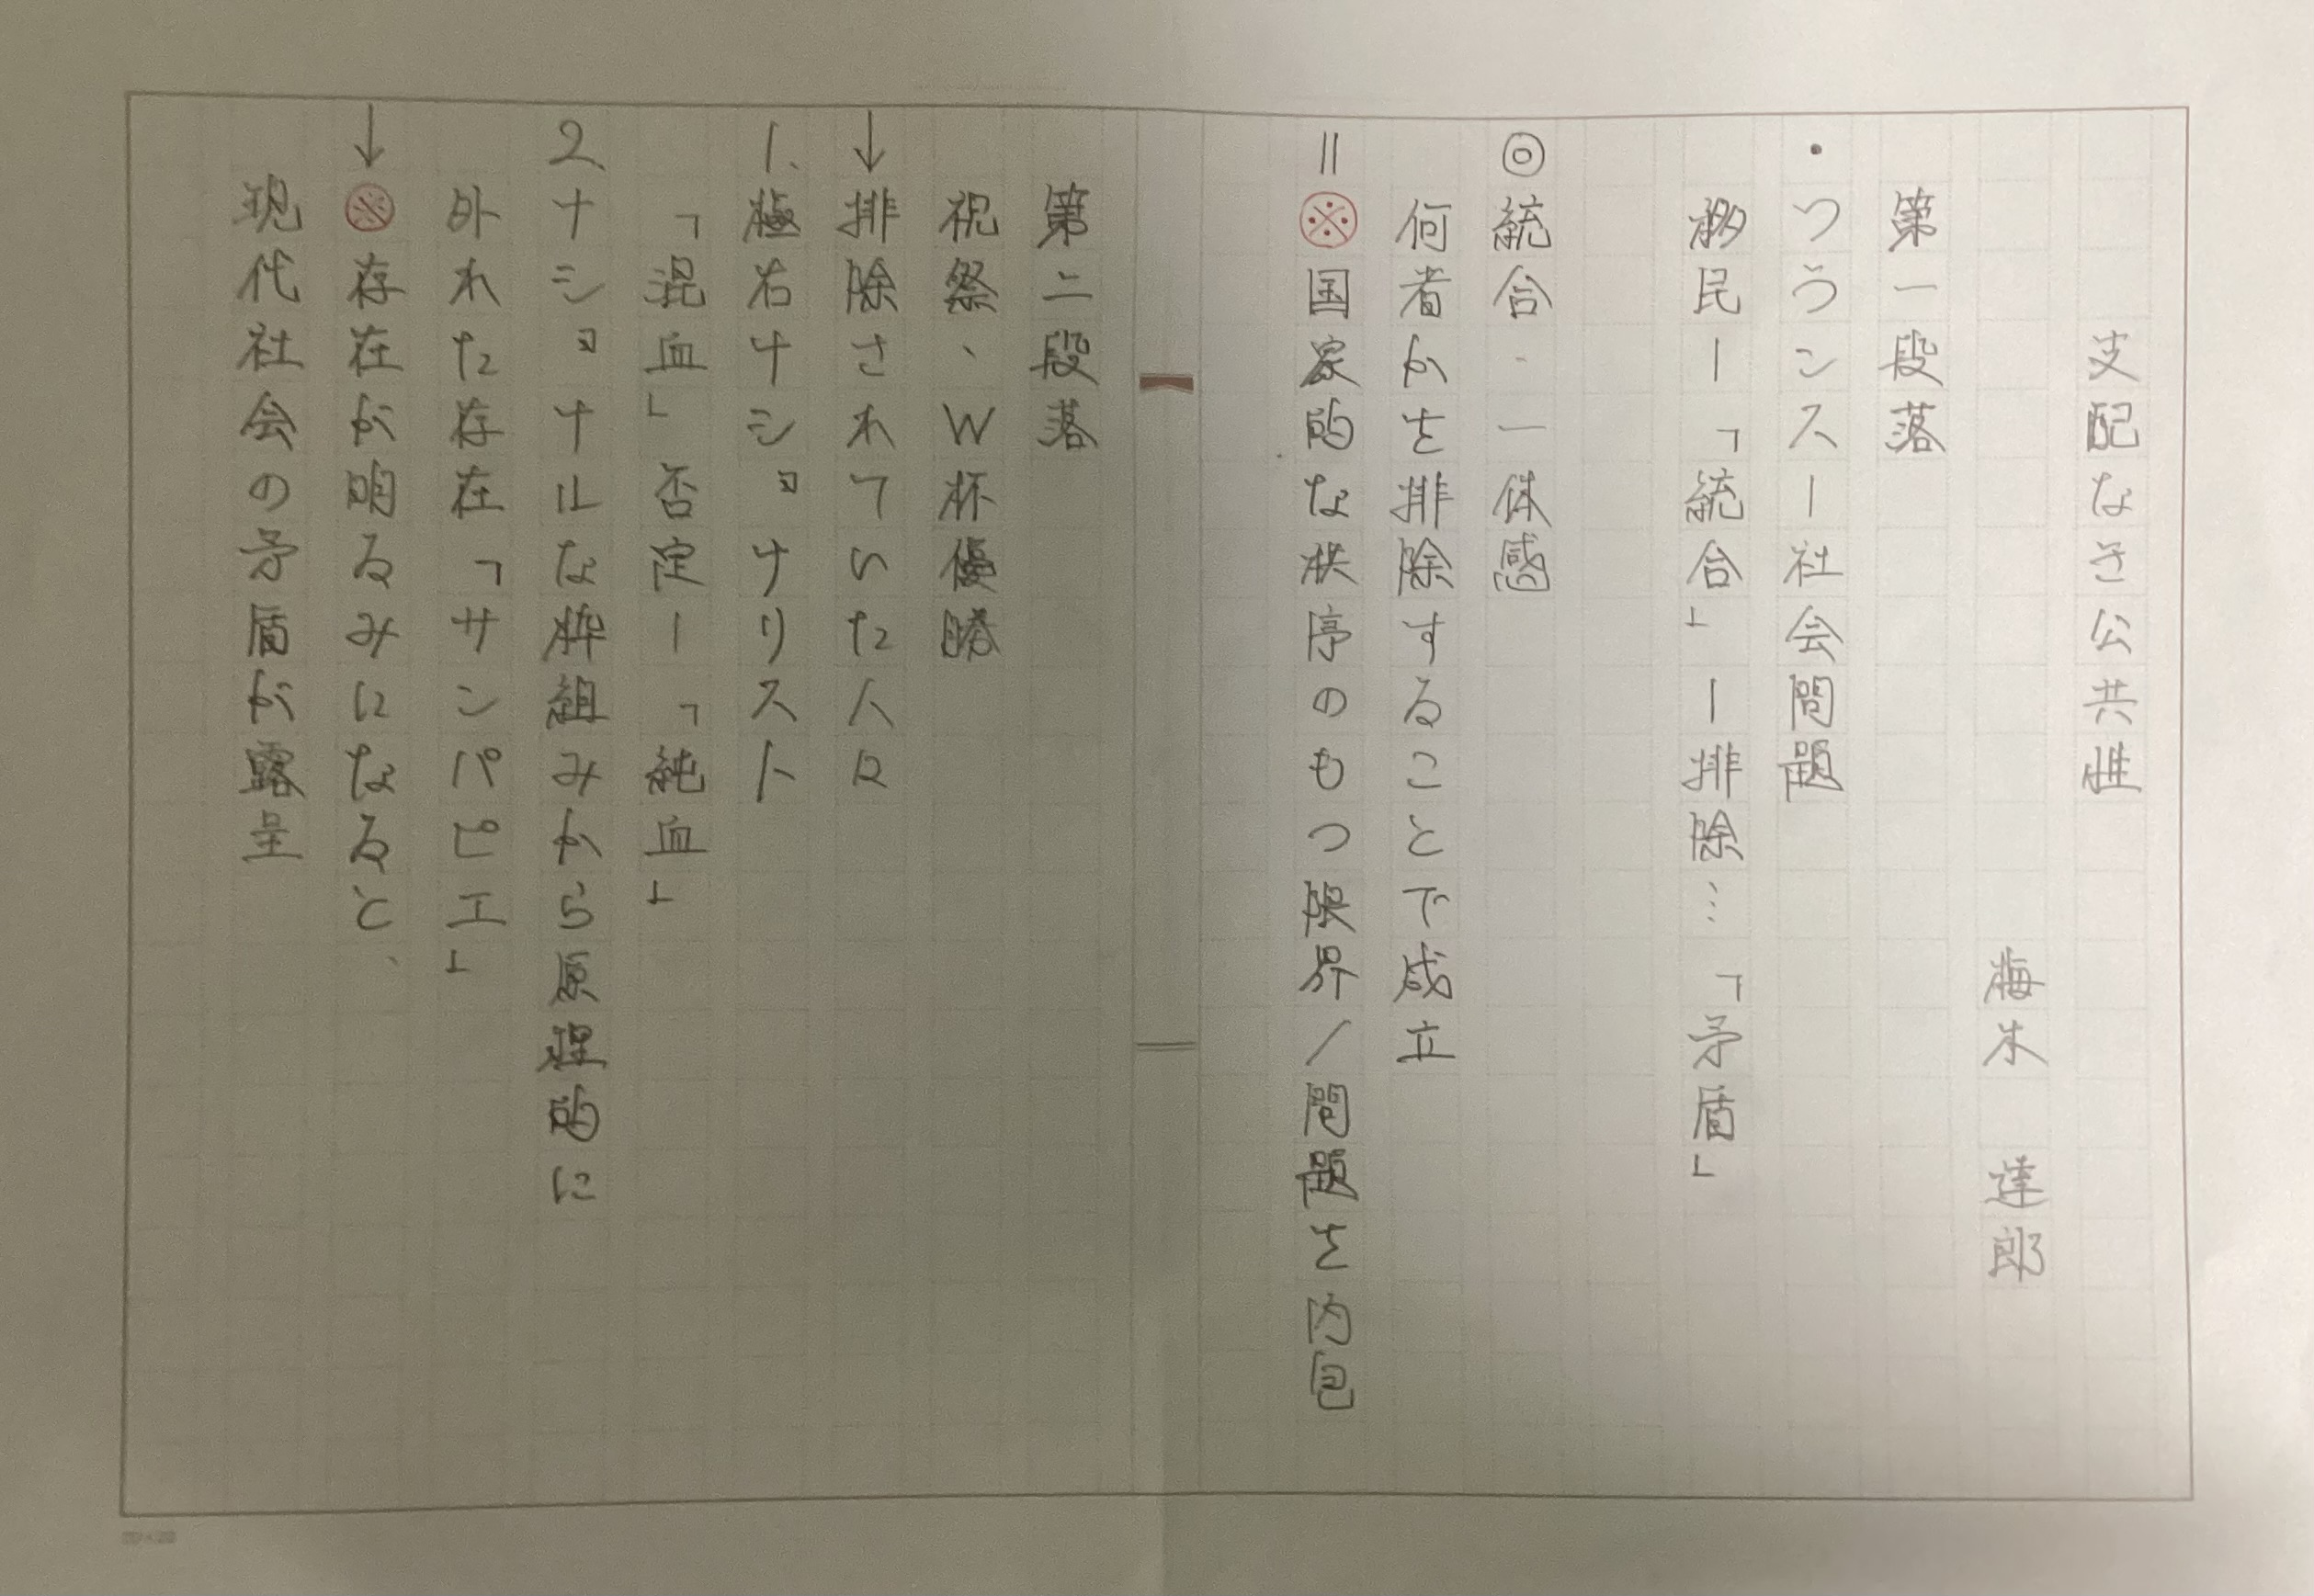 支配なき公共性
梅木 達郎
第一段落
・フランスー社会問題
移民ー「統合」ー排除…「矛盾」
◎統合・一体感
何者かを排除することで成立
＝※国家的な秩序のもつ限界／問題を内包
第二段落
祝祭、W杯優勝
↓排除されていた人々
1、極右ナショナリスト
「混血」否定ー「純血」
2、ナショナルな枠組みから原理的に
外れた存在「サンパピエ」
↓※存在が明るみになると、
現代社会の矛盾が露呈